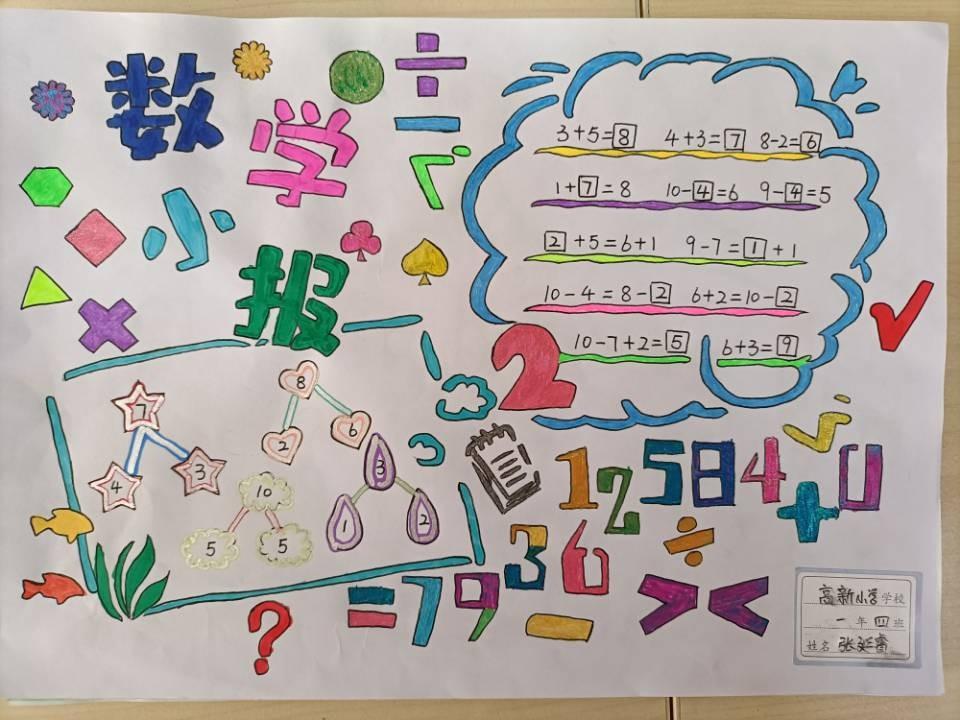 数学小报
3+5=8 4+3=7 8-2=6
1+7=8 10-4=6 9-4=5
2+5=6+1 9-7=1+1
10-4=8-2 6+2=10-2
10-7+2=5 6+3=9
2
7
4 3
8
2 6
10
5 5
3
1 2
1 2 5 8 4 + 0
= 7 9 3 6 ÷
- > <
?
÷
=
×
√
高新小学学校
一年四班
姓名 张延